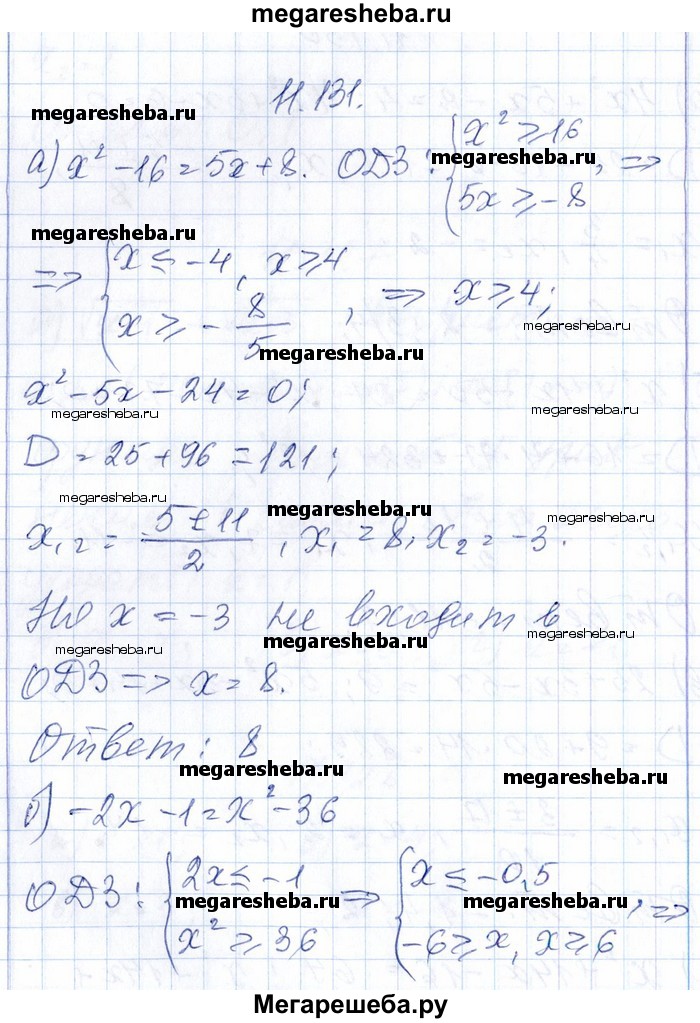 megaresheba.ru
11.131.
megaresheba.ru
а) x² - 16 = 5x + 8. ОДЗ: { x² ⩾ 16
megaresheba.ru
5x ⩾ -8 , =>
megaresheba.ru
=> { x ≤ -4, x ⩾ 4
x ⩾ - 8/5 , => x ⩾ 4;
megaresheba.ru
megaresheba.ru
x² - 5x - 24 = 0;
megaresheba.ru
megaresheba.ru
D = 25 + 96 = 121;
megaresheba.ru
megaresheba.ru
megaresheba.ru
x₁,₂ = 5 ± 11 / 2 , x₁ = 8, x₂ = -3.
Но x = -3 не входит в
megaresheba.ru
megaresheba.ru
megaresheba.ru
ОДЗ => x = 8.
Ответ: 8
megaresheba.ru
megaresheba.ru
б) -2x - 1 = x² - 36
ОДЗ: { 2x ≤ -1 => { x ≤ -0,5
megaresheba.ru
megaresheba.ru
x² ⩾ 36 -6 ⩾ x, x ⩾ 6 , =>
Мегарешеба.ру